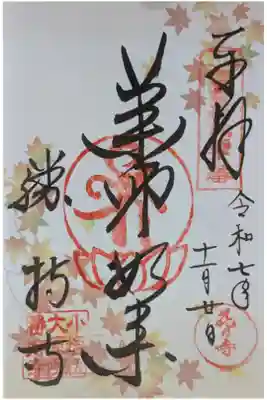 奉拝
令和七年
十一月廿日
花の寺
薬師如来
勝持寺